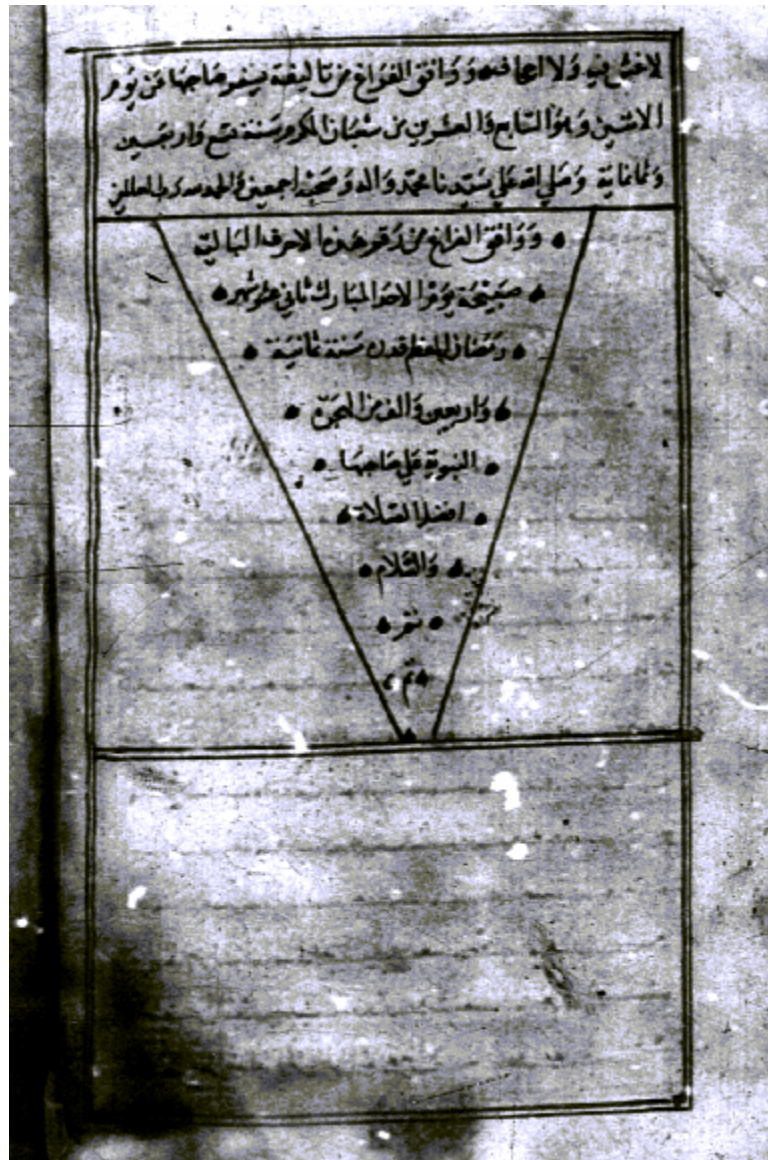 ووافق الفراغ من تاليفه يوم
الاثنين وهو السابع والعشرين من شعبان المكرم سنة واربعين
وثمانماية وصلى الله على سيدنا محمد واله وصحبه اجمعين والحمد لله رب العالمين
ووافق الفراغ من رقم هذه الاحرف البالية
صبيحة يوم الاحد المبارك ثاني عشر شهر
رمضان المعظم قدره سنة ثمانية
واربعين والف من الهجرة
النبوية على صاحبها
افضل الصلاة
والسلام
تم